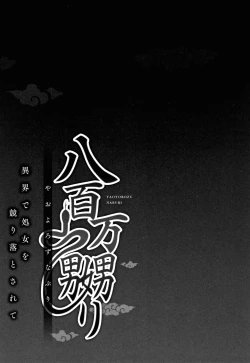 八百万嬲り
YAOYOROZU
NABURI
やおよろずなぶり
異界で処女を
競り落とされて